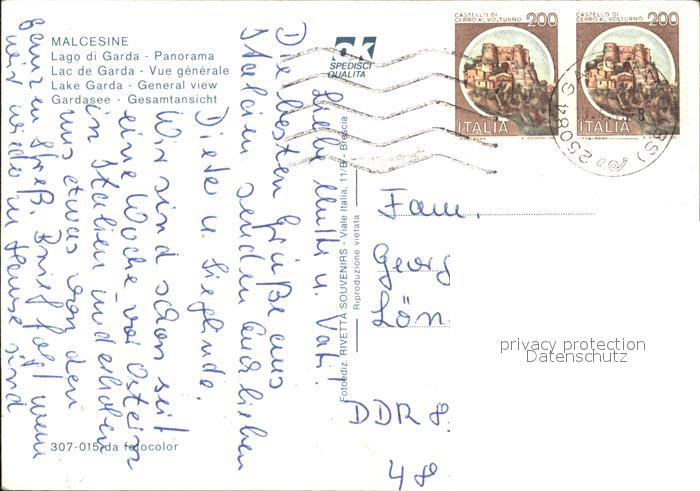 MALCESINE
Lago di Garda - Panorama
Lac de Garda - Vue générale
Lake Garda - General view
Gardasee - Gesamtansicht
SPEDISCI
QUALITÀ
CASTELLO DI
CERRO AL VOLTURNO
200
ITALIA
CASTELLO DI
CERRO AL VOLTURNO
200
ITALIA
25084 GA
(BS)
Liebe Mutti u. Vati!
Die besten Grüße aus
Italien senden Euch lieben
Dieter u. Sieglinde.
Wir sind schon seit
eine Woche vor Ostern
in Italien und erholen
uns etwas von den
ganzen Streß. Brief folgt wenn
wir wieder zu Hause sind
Fotoediz. RIVETTA SOUVENIRS - Viale Italia, 11/B - Brescia
Riproduzione vietata
Fam.
Georg
Lön
DDR 8
48
307-015 da fotocolor
privacy protection
Datenschutz